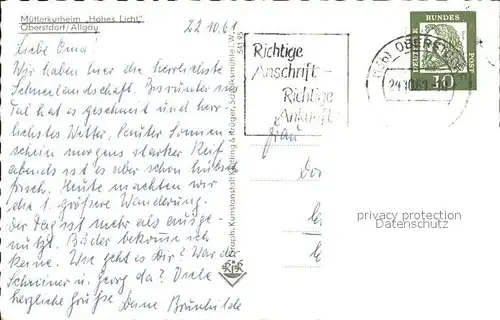 Mütterkurheim „Hohes Licht"
Oberstdorf/Allgäu
22.10.61
Liebe Oma!
Wir haben hier die herrlichste
Schneelandschaft. Bis runter ins
Tal hat es geschneit und herr-
lichstes Wetter. Lauter Sonnen
schein morgens starker Reif
abends ist es aber schon hübsch
frisch. Heute machten wir
die 1. größere Wanderung.
Der Tag ist mehr als ausge-
nützt. Bäder bekomme ich
keine. Wie geht es Dir? War der
Schreiner u. Georg da? Viele
herzliche Grüße Deine Brunhilde
Richtige
Anschrift-
Richtige
Ankunft
OBERST
24.10.61
DEUTSCHE
BUNDES
POST
10
Frau
privacy protection
Datenschutz